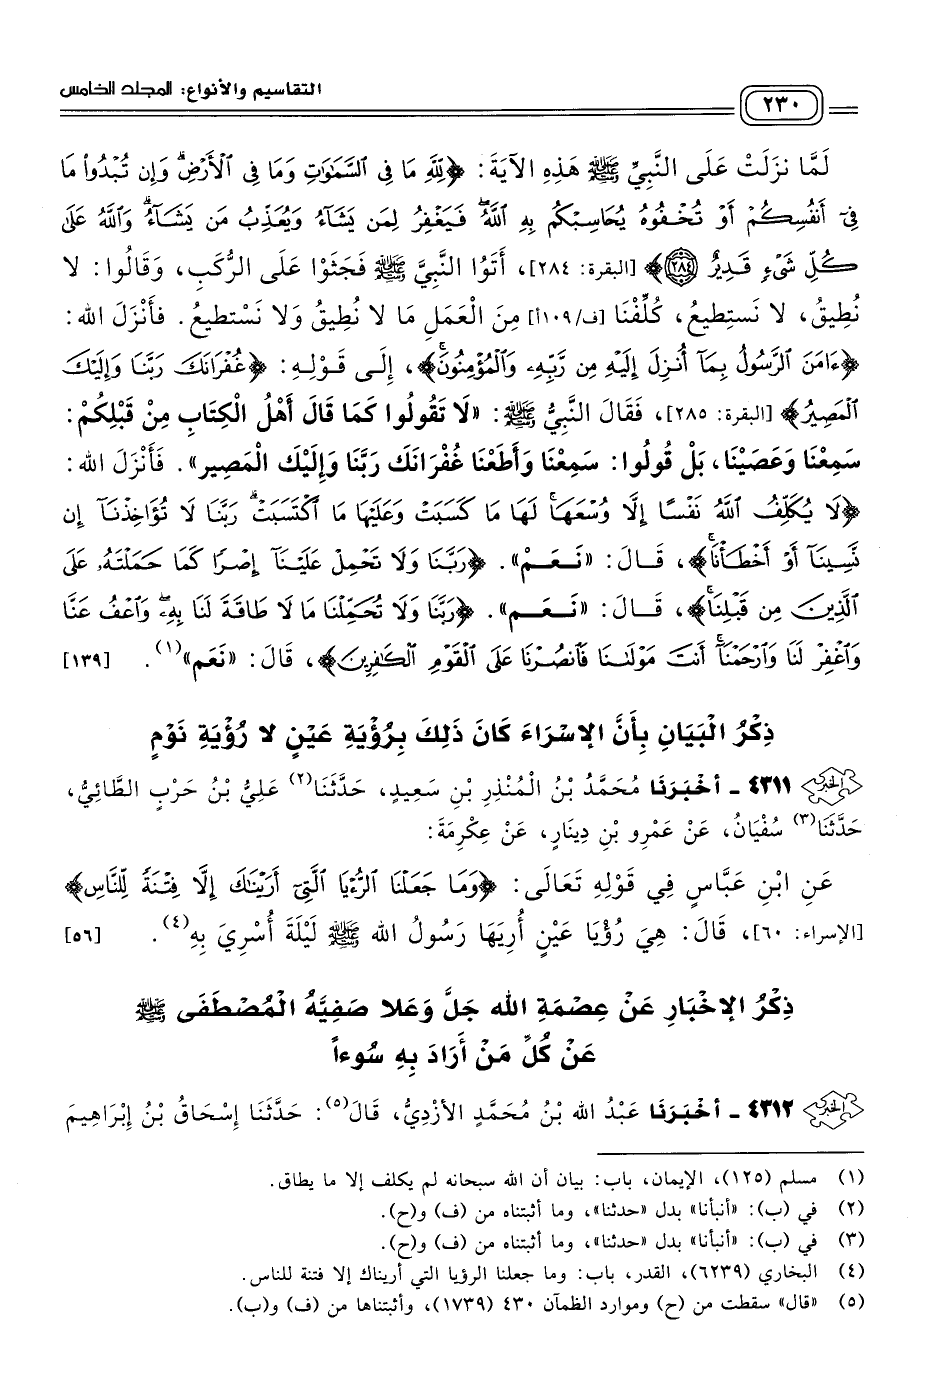 التقاسيم والأنواع: المجلد الخامس
٢٣٠
لَمَّا نزَلَتْ عَلَى النَّبِيِّ ﷺ هَذِهِ الآيَةَ: ﴿لِلَّهِ مَا فِي السَّمَاوَاتِ وَمَا فِي الْأَرْضِ ۗ وَإِن تُبْدُوا مَا
فِي أَنفُسِكُمْ أَوْ تُخْفُوهُ يُحَاسِبْكُم بِهِ اللَّهُ ۖ فَيَغْفِرُ لِمَن يَشَاءُ وَيُعَذِّبُ مَن يَشَاءُ ۗ وَاللَّهُ عَلَىٰ
كُلِّ شَيْءٍ قَدِيرٌ ٢٨٤﴾ [البقرة: ٢٨٤]، أَتَوُا النَّبِيَّ ﷺ فَجَثَوْا عَلَى الرُّكَبِ، وَقَالُوا: لا
نُطِيقُ، لا نَستِطيعُ، كُلِّفْنَا [ف/١٠٩أ] مِنَ الْعَمَلِ مَا لا نُطِيقُ وَلا نَسْتطيعُ. فأَنْزَلَ الله:
﴿ءَامَنَ الرَّسُولُ بِمَا أُنزِلَ إِلَيْهِ مِن رَّبِّهِ وَالْمُؤْمِنُونَ ۚ﴾، إِلَى قَوْلِهِ: ﴿غُفْرَانَكَ رَبَّنَا وَإِلَيْكَ
الْمَصِيرُ﴾ [البقرة: ٢٨٥]، فَقَالَ النَّبِيُّ ﷺ: «لَا تَقُولُوا كَمَا قَالَ أَهْلُ الْكِتَابِ مِنْ قَبْلِكُمْ:
سَمِعْنَا وَعَصَيْنَا، بَلْ قُولُوا: سَمِعْنَا وَأَطَعْنَا غُفْرَانَكَ رَبَّنَا وَإِلَيْكَ الْمَصِير». فَأَنْزَلَ الله:
﴿لَا يُكَلِّفُ اللَّهُ نَفْسًا إِلَّا وُسْعَهَا ۚ لَهَا مَا كَسَبَتْ وَعَلَيْهَا مَا اكْتَسَبَتْ ۗ رَبَّنَا لَا تُؤَاخِذْنَا إِن
نَّسِينَا أَوْ أَخْطَأْنَا ۚ﴾، قَالَ: «نَعَمْ». ﴿رَبَّنَا وَلَا تَحْمِلْ عَلَيْنَا إِصْرًا كَمَا حَمَلْتَهُ عَلَى
الَّذِينَ مِن قَبْلِنَا ۚ﴾، قَالَ: «نَعَم». ﴿رَبَّنَا وَلَا تُحَمِّلْنَا مَا لَا طَاقَةَ لَنَا بِهِ ۖ وَاعْفُ عَنَّا
وَاغْفِرْ لَنَا وَارْحَمْنَا ۚ أَنتَ مَوْلَانَا فَانصُرْنَا عَلَى الْقَوْمِ الْكَافِرِينَ﴾، قَالَ: «نَعَم»(١). [١٣٩]
ذِكْرُ الْبَيَانِ بِأَنَّ الإسْرَاءَ كَانَ ذَلِكَ بِرُؤْيَةِ عَيْنٍ لا رُؤْيَةِ نَوْمٍ
٤٣١١ ـ أخْبَرَنَا مُحَمَّدُ بْنُ الْمُنْذِرِ بْنِ سَعِيدٍ، حَدَّثَنَا(٢) عَلِيُّ بْنُ حَرْبٍ الطَّائِيُّ،
حَدَّثَنَا(٣) سُفْيَانُ، عَنْ عَمْرِو بْنِ دِينَارٍ، عَنْ عِكْرِمَةَ:
عَنِ ابْنِ عَبَّاسٍ فِي قَوْلِهِ تَعَالَى: ﴿وَمَا جَعَلْنَا الرُّءْيَا الَّتِي أَرَيْنَاكَ إِلَّا فِتْنَةً لِّلنَّاسِ﴾
[الإسراء: ٦٠]، قَالَ: هِيَ رُؤْيَا عَيْنٍ أُرِيَهَا رَسُولُ الله ﷺ لَيْلَةَ أُسْرِيَ بِهِ(٤). [٥٦]
ذِكْرُ الإخْبَارِ عَنْ عِصْمَةِ الله جَلَّ وَعَلا صَفِيَّهُ الْمُصْطَفَى ﷺ
عَنْ كُلِّ مَنْ أَرَادَ بِهِ سُوءاً
٤٣١٢ ـ أخْبَرَنَا عَبْدُ الله بْنُ مُحَمَّدٍ الأزْدِيُّ، قَالَ(٥): حَدَّثَنَا إسْحَاقُ بْنُ إبْرَاهِيمَ
(١) مسلم (١٢٥)، الإيمان، باب: بيان أن الله سبحانه لم يكلف إلا ما يطاق.
(٢) في (ب): «أنبأنا» بدل «حدثنا»، وما أثبتناه من (ف) و(ح).
(٣) في (ب): «أنبأنا» بدل «حدثنا»، وما أثبتناه من (ف) و(ح).
(٤) البخاري (٦٢٣٩)، القدر، باب: وما جعلنا الرؤيا التي أريناك إلا فتنة للناس.
(٥) «قال» سقطت من (ح) وموارد الظمآن ٤٣٠ (١٧٣٩)، وأثبتناها من (ف) و(ب).